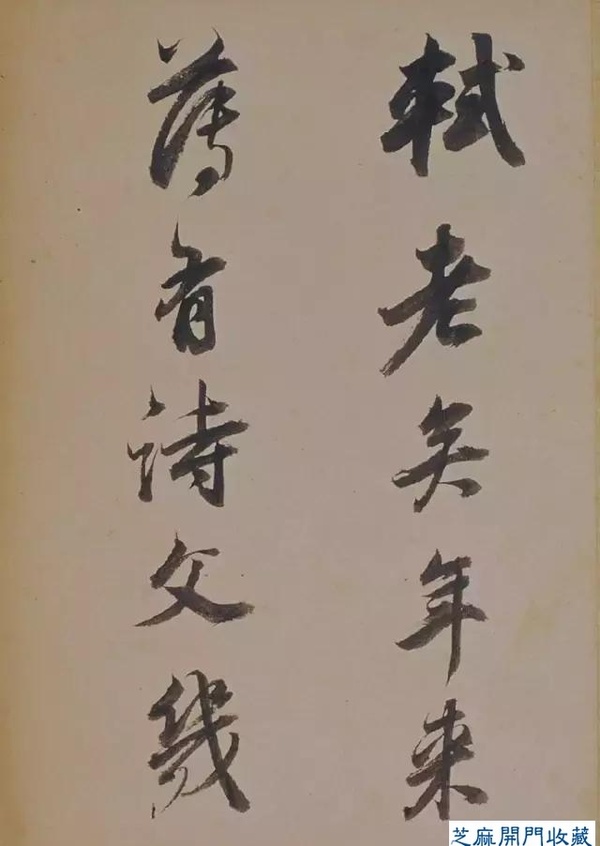 軾老矣年来
薄有詩文幾
芝麻開門收藏